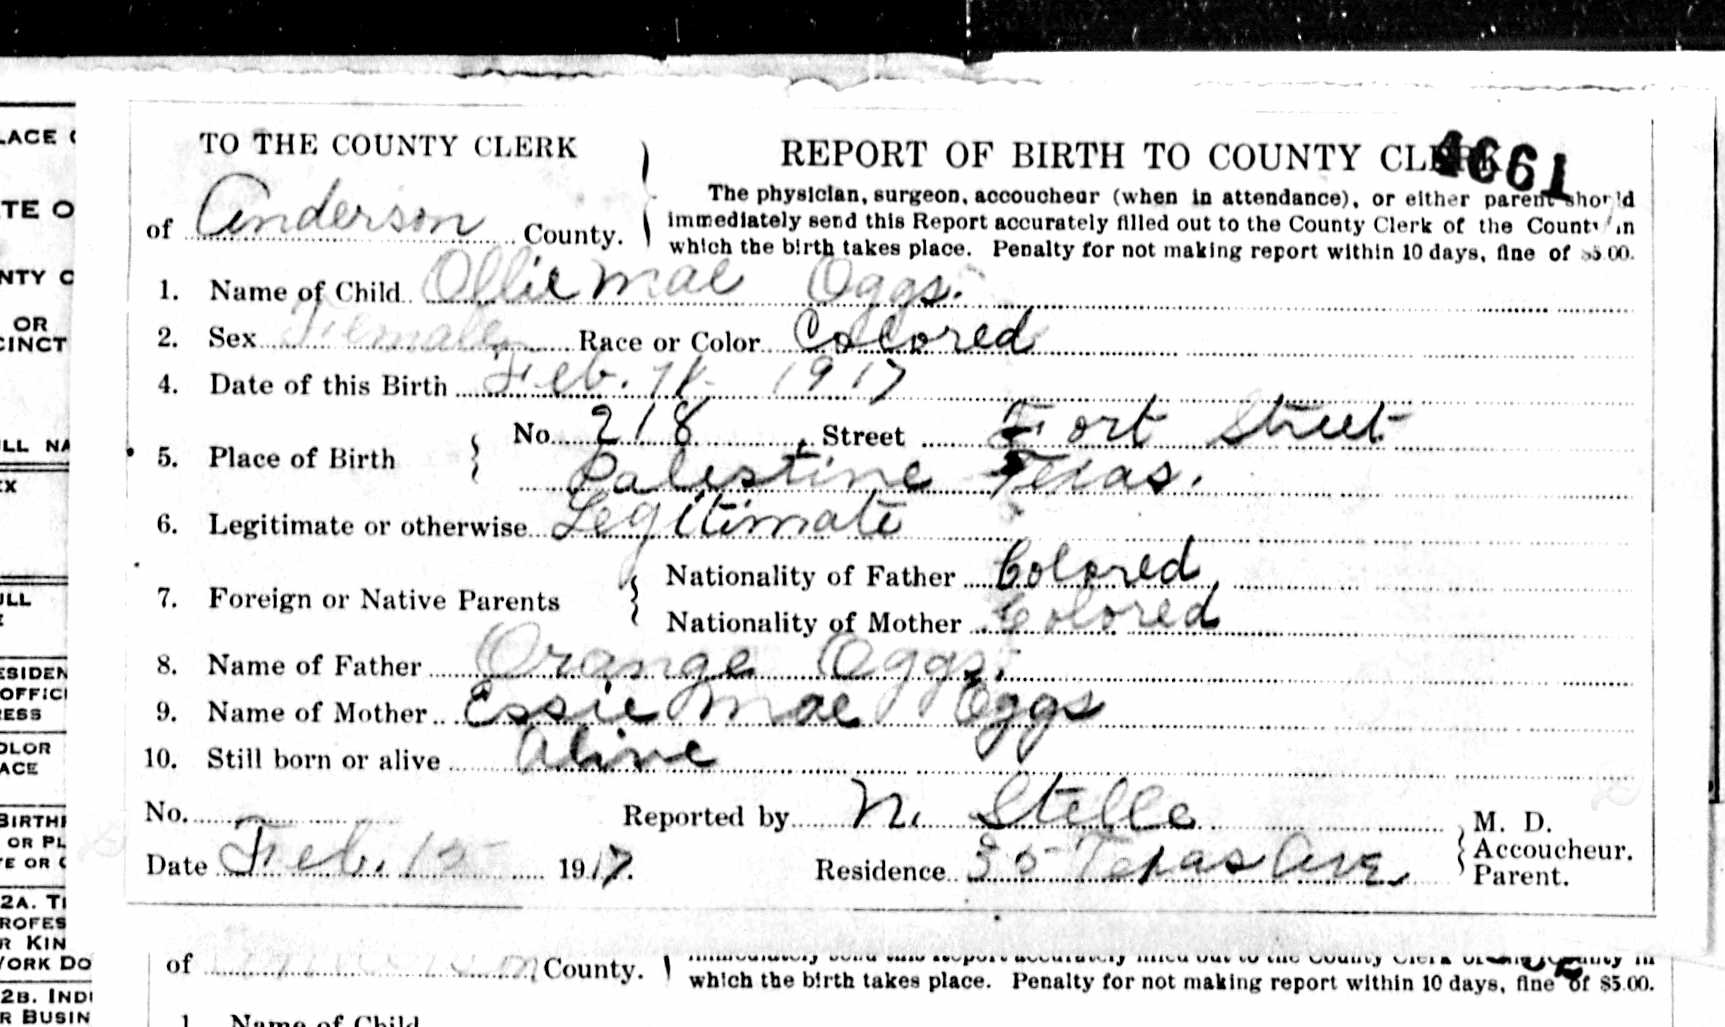 TO THE COUNTY CLERK
of Anderson County.
REPORT OF BIRTH TO COUNTY CLERK
4661
The physician, surgeon, accoucheur (when in attendance), or either parent should
immediately send this Report accurately filled out to the County Clerk of the County in
which the birth takes place. Penalty for not making report within 10 days, fine of $5.00.
1. Name of Child Ollie Mae Oggs.
2. Sex Female Race or Color Colored
4. Date of this Birth Feb. 1917
5. Place of Birth No. 218, Street Fort Street
Palestine Texas.
6. Legitimate or otherwise Legitimate
7. Foreign or Native Parents
Nationality of Father Colored,
Nationality of Mother Colored
8. Name of Father Orange Oggs.
9. Name of Mother Essie Mae Oggs
10. Still born or alive Alive
No. Reported by N. Stelle
M. D.
Accoucheur.
Parent.
Date Feb. 12 1917. Residence 35 Texas Ave.
of County.
which the birth takes place. Penalty for not making report within 10 days, fine of $5.00.
1 Name of Child
LACE
TE O
NTY C
OR
CINCT
LL NA
EX
ULL
ESIDEN
OFFICI
ESS
OLOR
ACE
BIRTH
OR PL
TE OR
2A. T
ROFES
R KIN
WORK DO
2B. INDI
R BUSIN